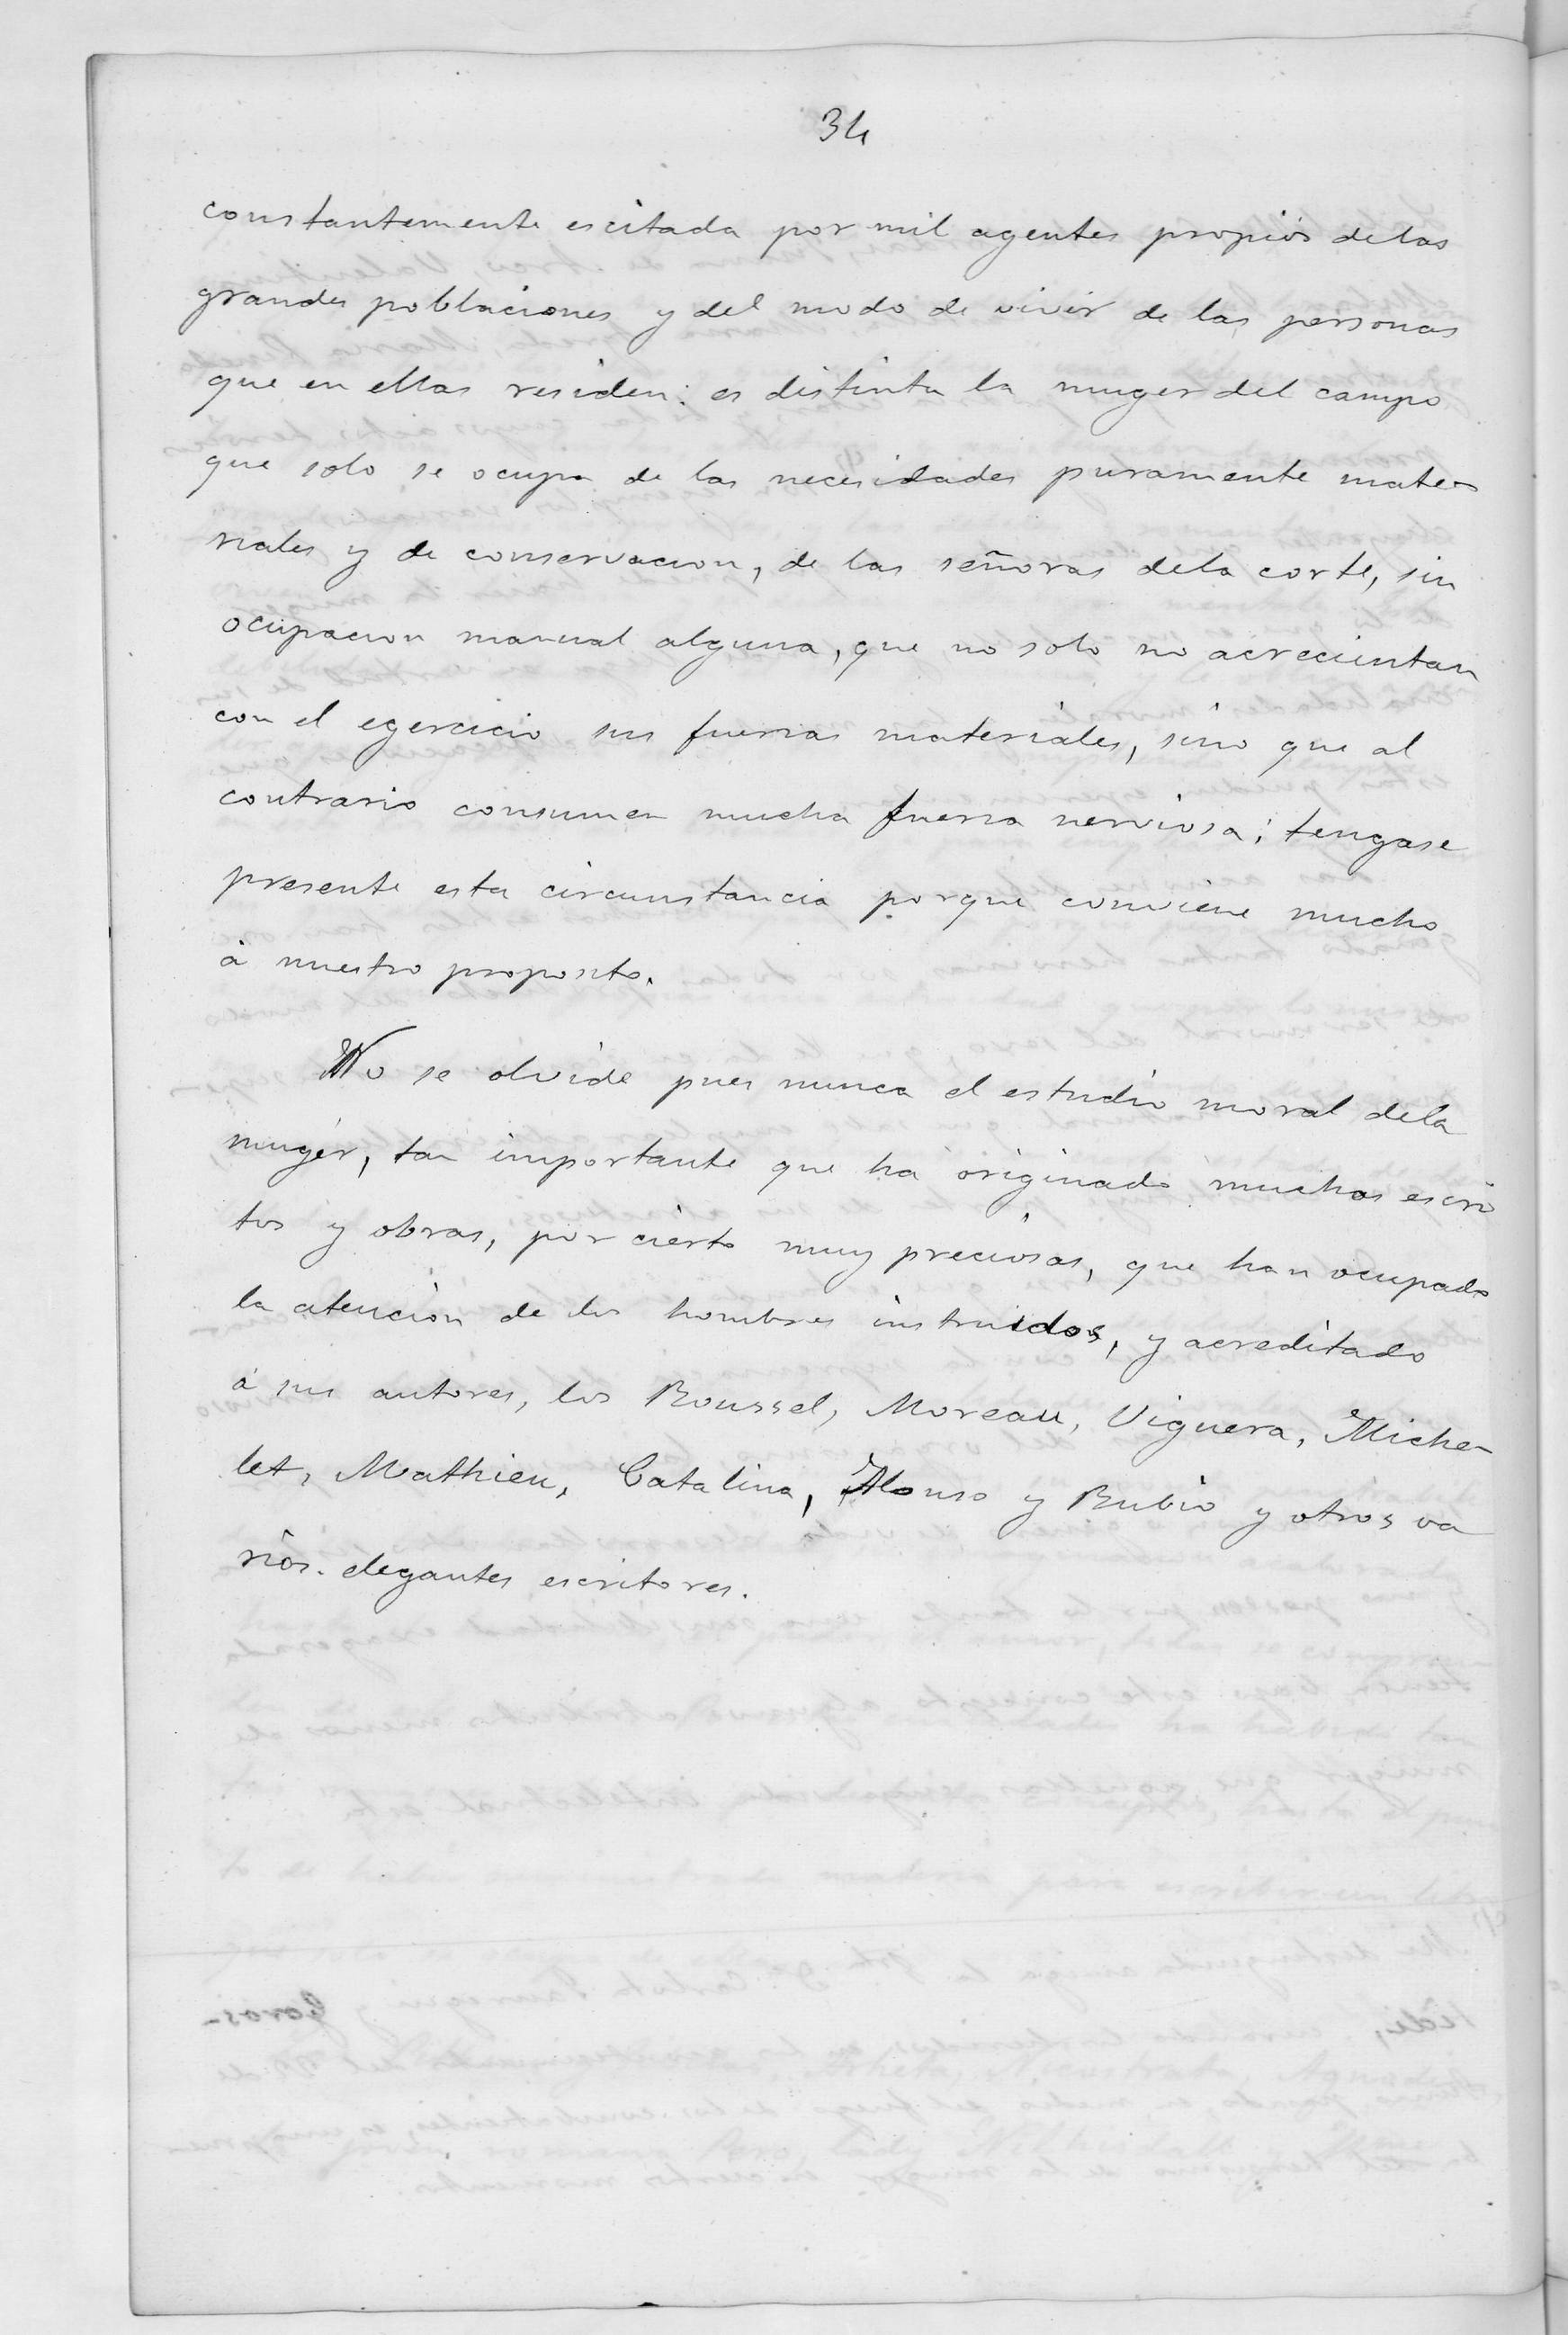 34
constantemente escitada por mil agentes propios de las
grandes poblaciones y del modo de vivir de las personas
que en ellas residen: es distinta la muger del campo
que solo se ocupa de las necesidades puramente mate-
riales y de conservacion, de las señoras dela corte, sin
ocupacion manual alguna, que no solo no acrecientan
con el egercicio sus fuerzas materiales, sino que al
contrario consumen mucha fuerza nerviosa; tengase
presente esta circunstancia porque conviene mucho
á nuestro proposito.
No se olvide pues nunca el estudio moral dela
muger, tan importante que ha originado muchos escri
tos y obras, por cierto muy preciosas, que han ocupado
la atencion de los hombres instruidos, y acreditado
á sus autores, los Roussel, Moreau, Viguera, Miche-
let, Mathieu, Catalina, Alonso y Rubio y otros va
rios elegantes escritores.